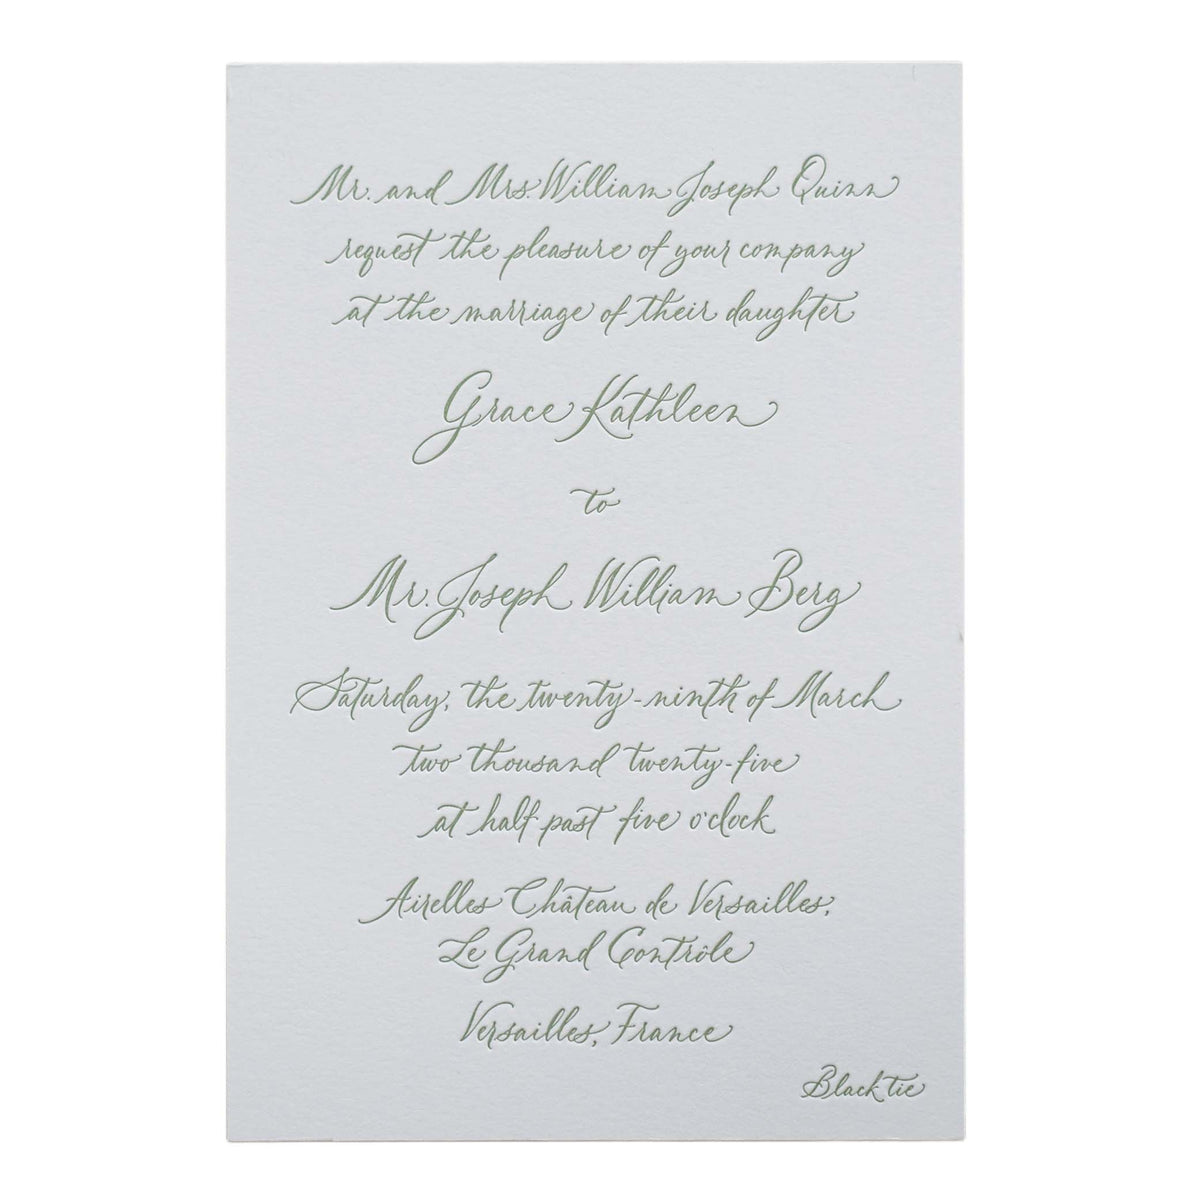 Mr. and Mrs. William Joseph Quinn
request the pleasure of your company
at the marriage of their daughter
Grace Kathleen
to
Mr. Joseph William Berg
Saturday, the twenty-ninth of March
two thousand twenty-five
at half past five o'clock
Airelles Château de Versailles,
Le Grand Contrôle
Versailles, France
Black tie